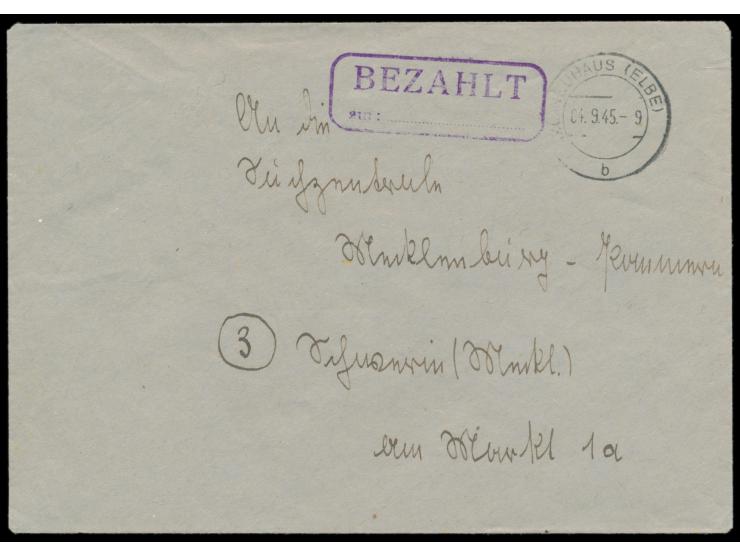 BEZAHLT
am:
NEUHAUS (ELBE)
04.9.45.- 9
b
An die
Suchzentrale
Mecklenburg - Pommern
3 Schwerin (Meckl.)
am Markt 1a